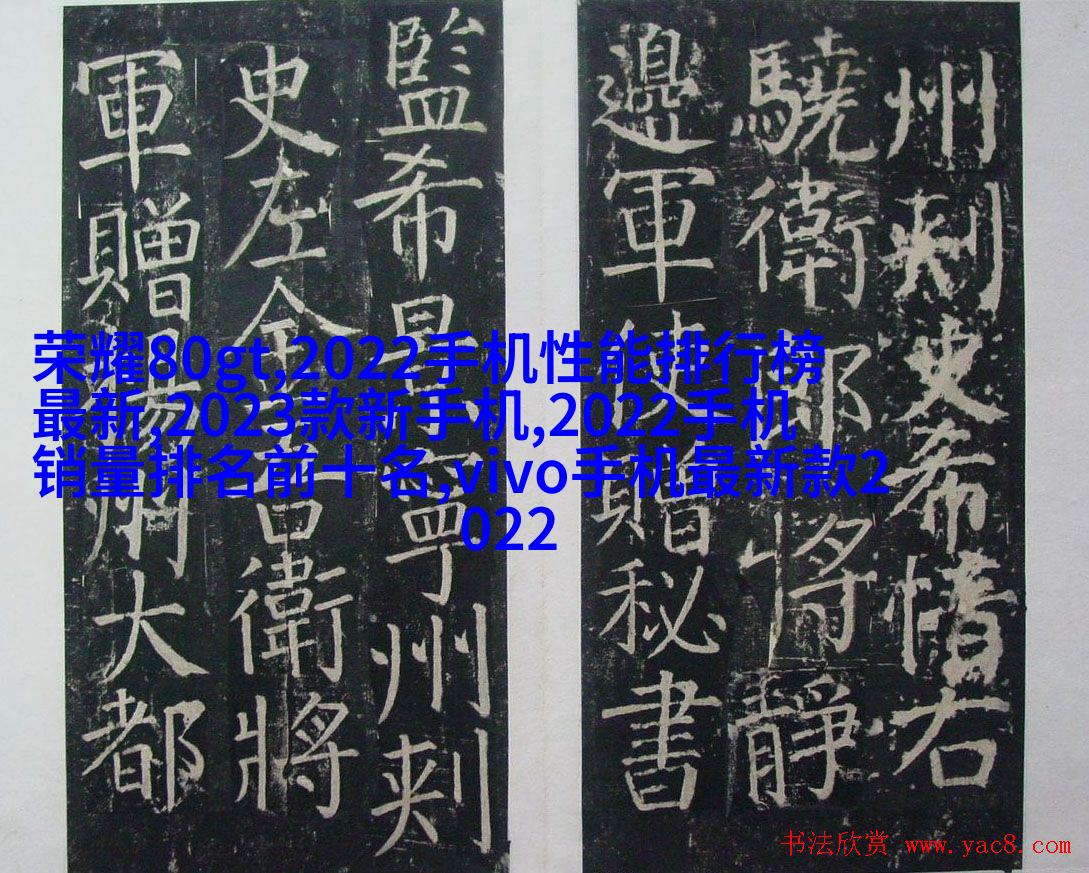 州刺史希愔右
驍衛郎將靜
邊軍使贈秘書
監希景寧州刺
史左金吾衛將
軍贈州大都
荣耀80gt,2022手机性能排行榜
最新,2023款新手机,2022手机
销量排名前十名,vivo手机最新款2
022
书法欣赏 www.yac8.com